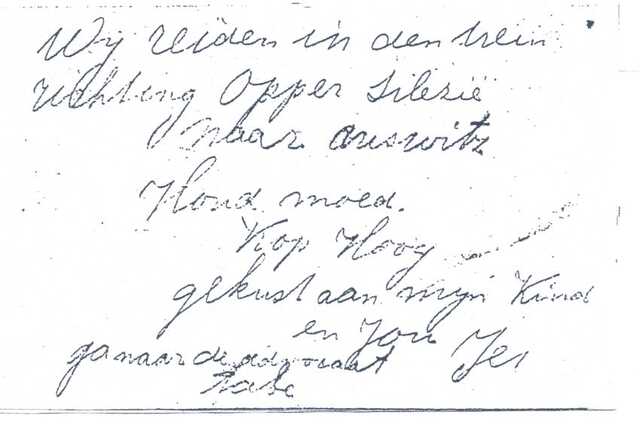 Wij reiden in den trein
richting Opper Silezië
naar Auswitz
Houd moed.
Kop Hoog
gekust aan mijn Kind
en Jou
ga naar de advocaat